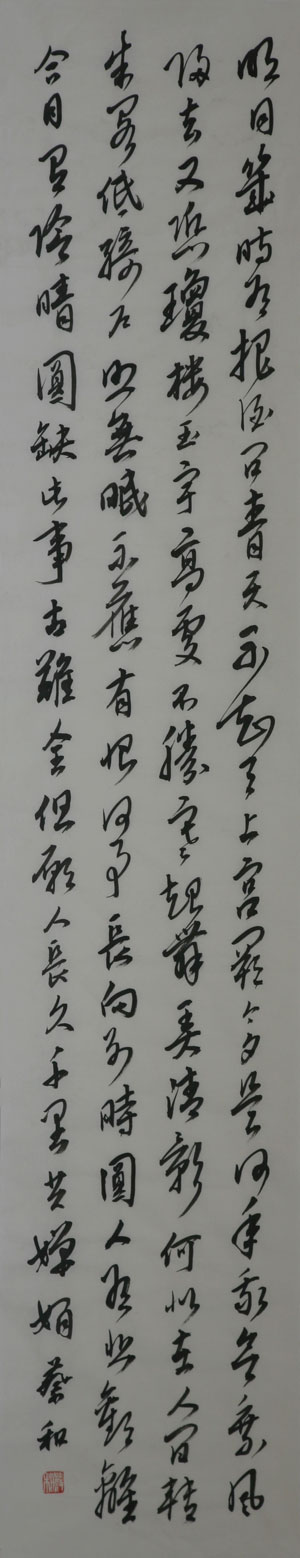 明月幾時有把酒問青天不知天上宮闕今夕是何年我欲乘風
歸去又恐瓊樓玉宇高處不勝寒起舞弄清影何似在人間轉
朱閣低綺户照無眠不應有恨何事長向別時圓人有悲歡離
合月有陰晴圓缺此事古難全但願人長久千里共嬋娟蔡和